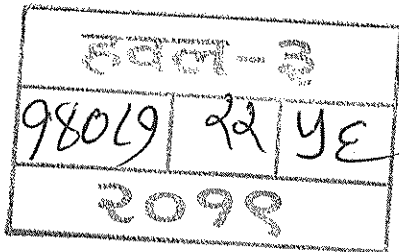 हवल-३
१४०७ २२ ५६
२०१९